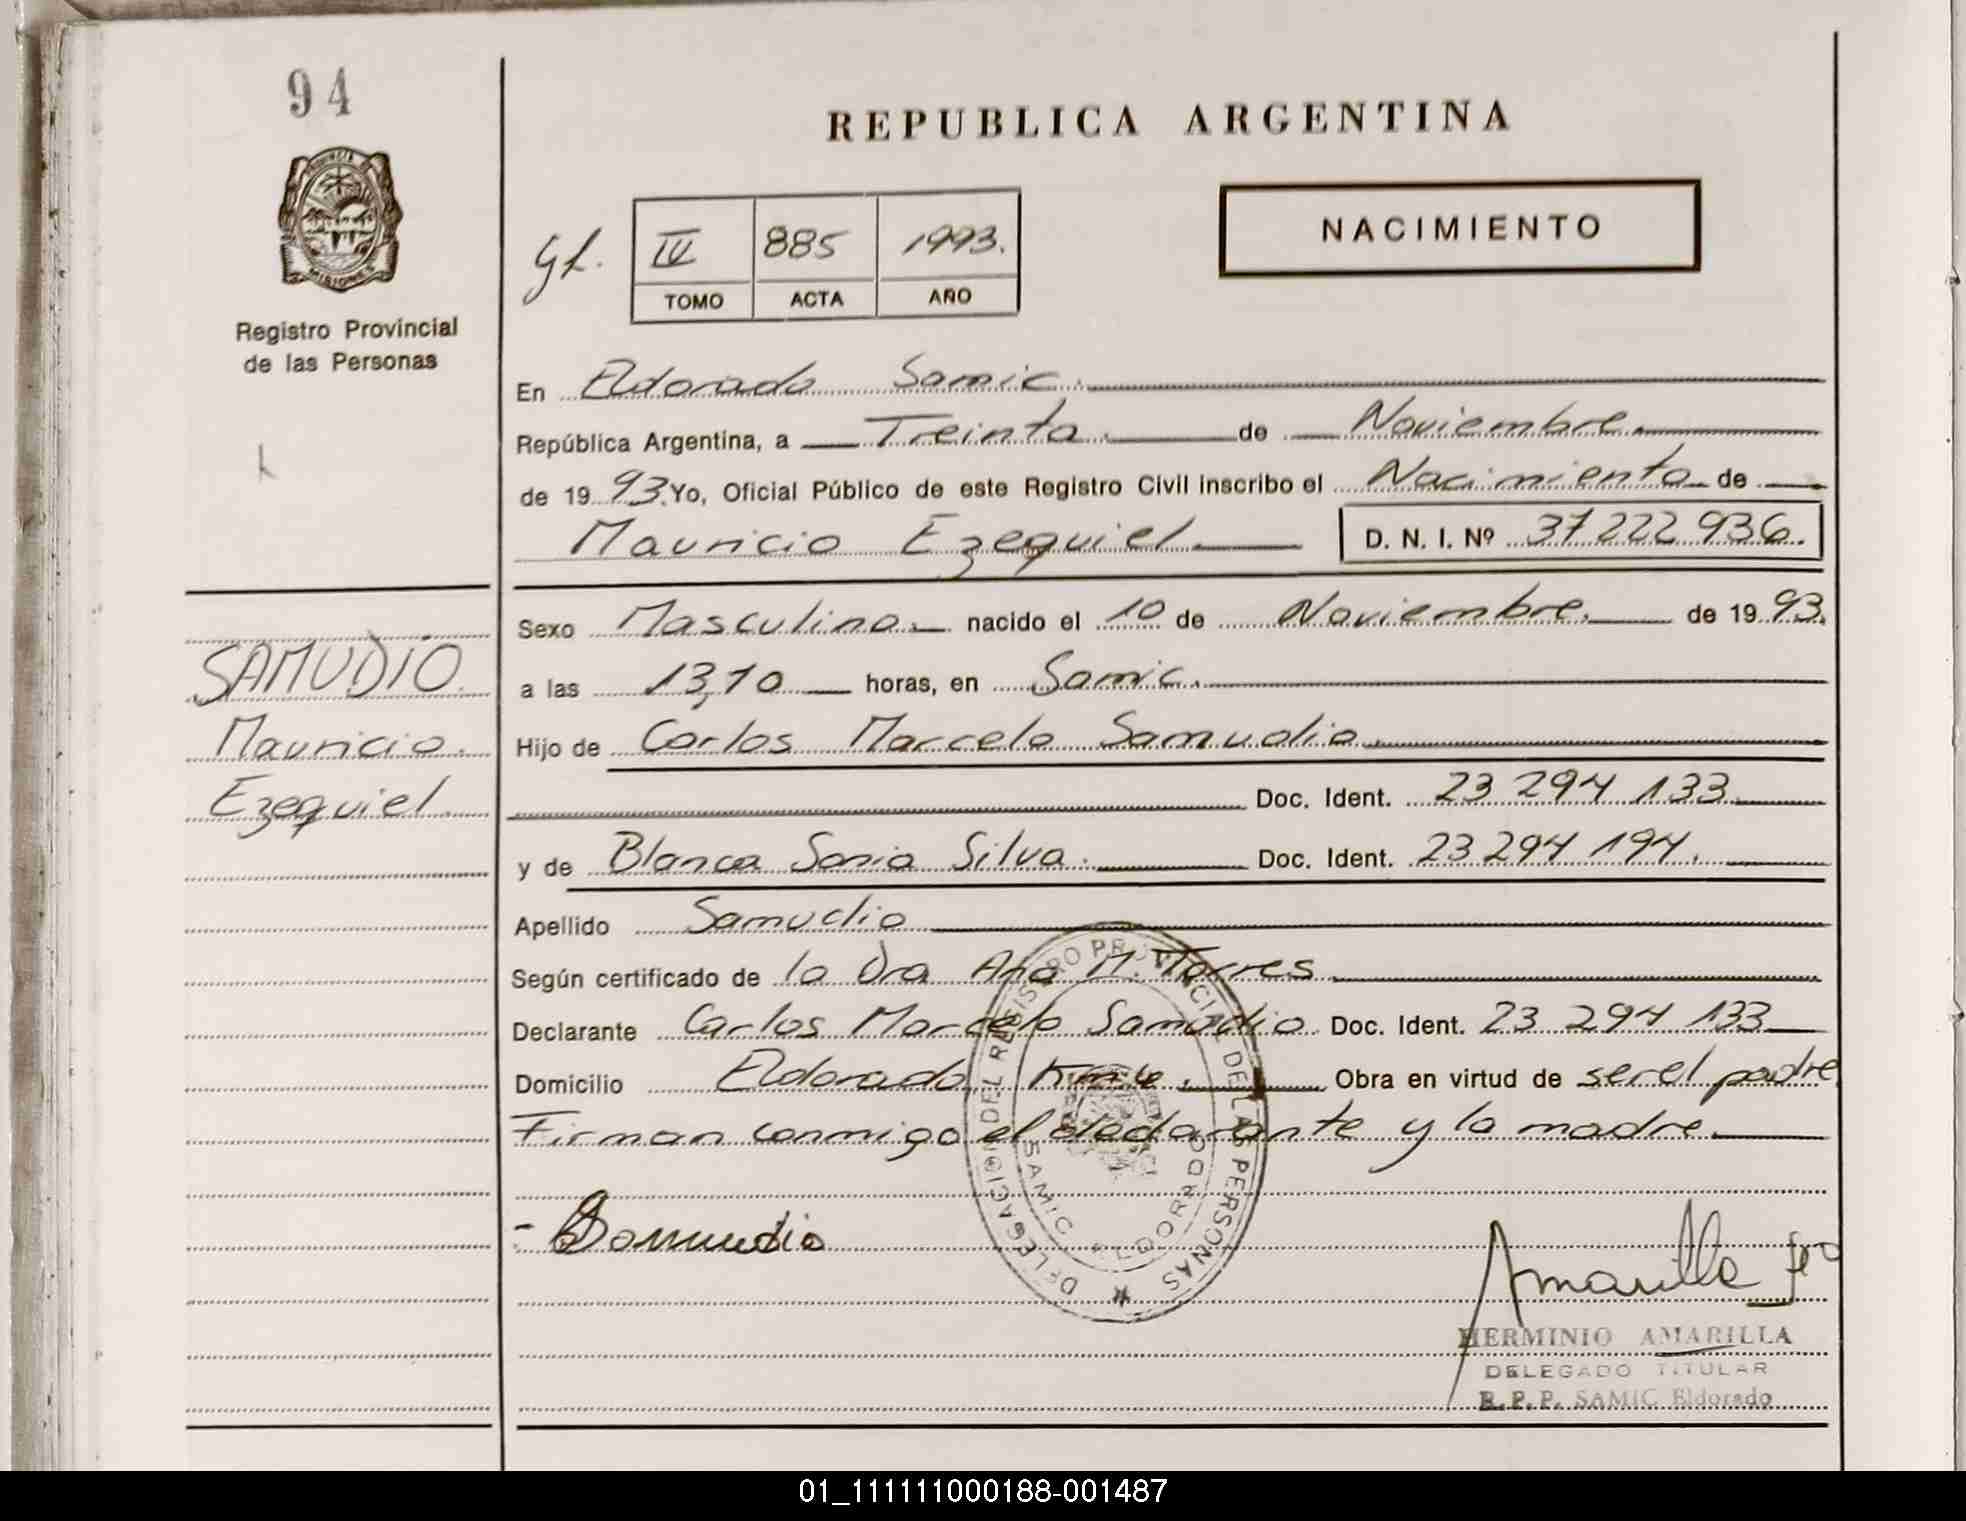 94
REPUBLICA ARGENTINA
PROVINCIA DE
MISIONES
Registro Provincial
de las Personas
NACIMIENTO
IV 885 1993.
TOMO ACTA AÑO
En Eldorado Samic.
República Argentina, a Treinta de Noviembre
de 19 93. Yo, Oficial Público de este Registro Civil inscribo el Nacimiento de
Mauricio Ezequiel D. N. I. Nº 37 222 936.
Sexo Masculino. nacido el 10 de Noviembre. de 19 93.
a las 13,10 horas, en Samic.
Hijo de Carlos Marcelo Samudio
Doc. Ident. 23 294 133
y de Blanca Sonia Silva. Doc. Ident. 23 294 194.
Apellido Samudio
Según certificado de la Dra Ana M. Torres
Declarante Carlos Marcelo Samudio Doc. Ident. 23 294 133
Domicilio Eldorado, Obra en virtud de ser el padre
Firman conmigo el declarante y la madre.
SAMUDIO
Mauricio.
Ezequiel.
DELEGACION DEL REGISTRO PROVINCIAL DE LAS PERSONAS
SAMIC ELDORADO
Samudio
Amarilla
HERMINIO AMARILLA
DELEGADO TITULAR
R. P. P. SAMIC Eldorado
01_111111000188-001487